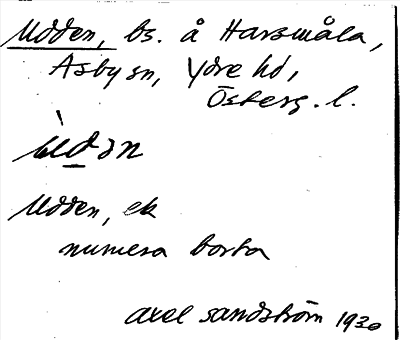 Udden, bs. å Harsmåla,
Asby sn, Ydre hd,
Österg. l.
ùdən
Udden, ek
numera borta
Axel Sandström 1930